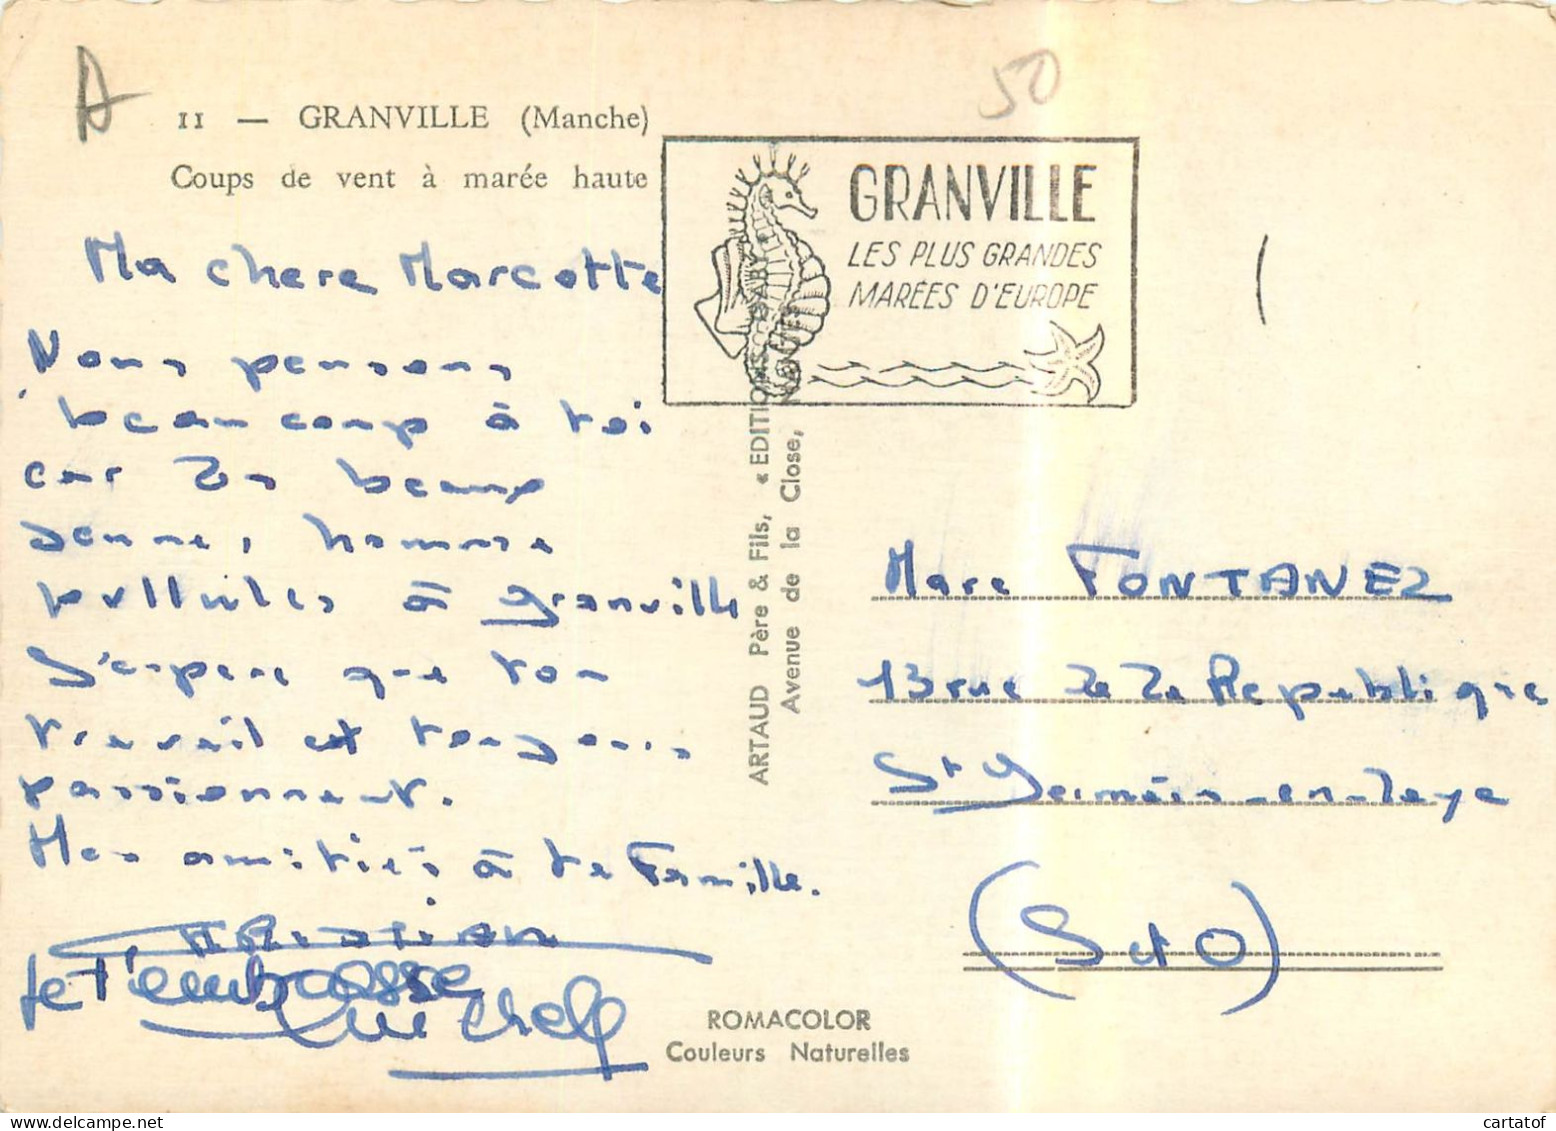 A
50
11 — GRANVILLE (Manche)
Coups de vent à marée haute
GRANVILLE
LES PLUS GRANDES
MARÉES D'EUROPE
Ma chere Marcotte
Nous pensons
beaucoup à toi
car les beaux
jeunes hommes
pullules à granville
J'espere que ton
travail est toujours
passionnent.
Mes amitiés à ta Famille.
Christian
Je t'embrasse
Michel
ARTAUD Père & Fils, « EDITIONS GABY »
Avenue de la Close, NANTES
Marc FONTANEZ
13 rue de la Republique
St Germain-en-Laye
(S et O)
ROMACOLOR
Couleurs Naturelles
cartatof